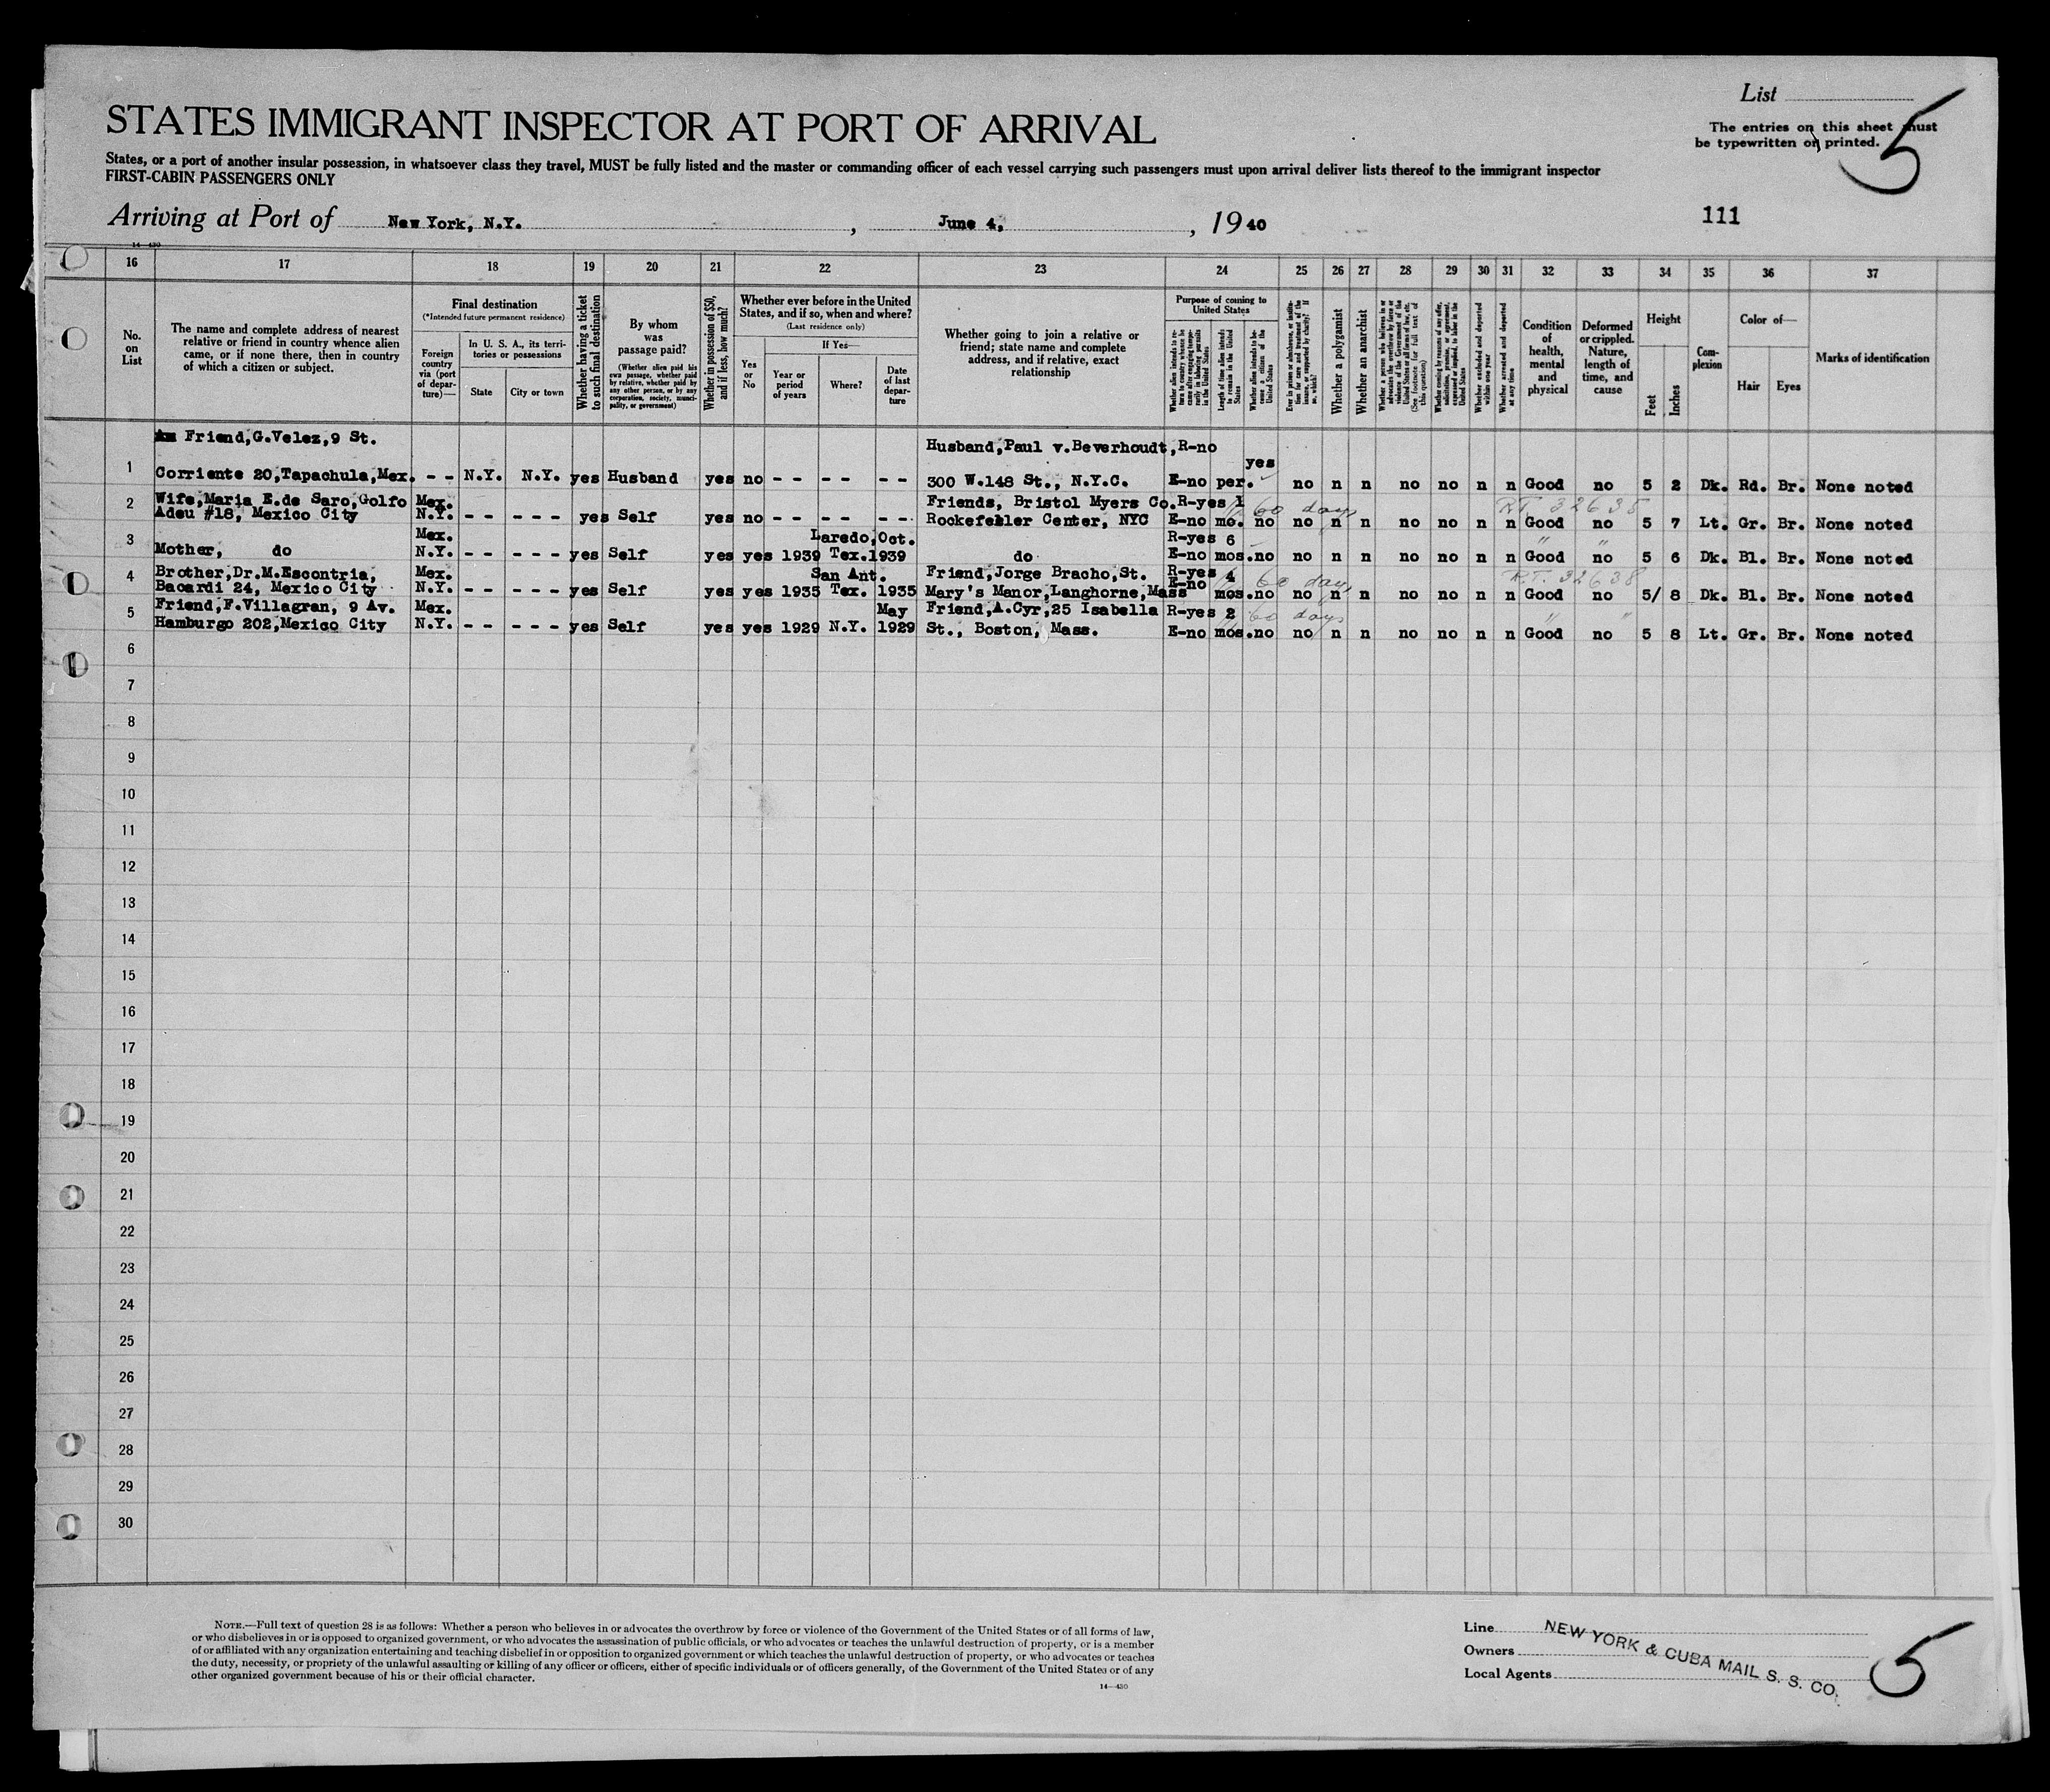 List
The entries on this sheet must
be typewritten or printed.
5
STATES IMMIGRANT INSPECTOR AT PORT OF ARRIVAL
States, or a port of another insular possession, in whatsoever class they travel, MUST be fully listed and the master or commanding officer of each vessel carrying such passengers must upon arrival deliver lists thereof to the immigrant inspector
FIRST-CABIN PASSENGERS ONLY
Arriving at Port of New York, N.Y. , June 4, , 19 40
111
14—430
16 17 18 19 20 21 22 23 24 25 26 27 28 29 30 31 32 33 34 35 36 37
No.
on
List
The name and complete address of nearest
relative or friend in country whence alien
came, or if none there, then in country
of which a citizen or subject.
Final destination
(*Intended future permanent residence)
Foreign
country
via (port
of depar-
ture)—
In U. S. A., its terri-
tories or possessions
State
City or town
Whether having a ticket
to such final destination
By whom
was
passage paid?
(Whether alien paid his
own passage, whether paid
by relative, whether paid by
any other person, or by any
corporation, society, munici-
pality, or government)
Whether in possession of $50,
and if less, how much?
Whether ever before in the United
States, and if so, when and where?
(Last residence only)
Yes
or
No
If Yes—
Year or
period
of years
Where?
Date
of last
depar-
ture
Whether going to join a relative or
friend; state name and complete
address, and if relative, exact
relationship
Purpose of coming to
United States
Whether alien intends to re-
turn to country whence he
came after engaging tempo-
rarily in laboring pursuits
in the United States
Length of time alien intends
to remain in the United
States
Whether alien intends to be-
come a citizen of the
United States
Ever in prison or almshouse, or institu-
tion for care and treatment of the
insane, or supported by charity? If
so, which?
Whether a polygamist
Whether an anarchist
Whether a person who believes in or
advocates the overthrow by force or
violence of the Government of the
United States or all forms of law, etc.
(See footnote for full text of
this question)
Whether coming by reasons of any offer,
solicitation, promise, or agreement,
expressed or implied, to labor in the
United States
Whether excluded and deported
within one year
Whether arrested and deported
at any time
Condition
of
health,
mental
and
physical
Deformed
or crippled.
Nature,
length of
time, and
cause
Height
Feet
Inches
Com-
plexion
Color of—
Hair
Eyes
Marks of identification
Friend,G.Velez,9 St. Husband,Paul v.Beverhoudt, R-no
yes
1 Corriente 20,Tapachula,Mex. - - N.Y. N.Y. yes Husband yes no - - - - - - 300 W.148 St., N.Y.C. E-no per. no n n no no n n Good no 5 2 Dk. Rd. Br. None noted
2 Wife,Maria E.de Saro,Golfo Mex. Friends, Bristol Myers Co. R-yes 1 60 days RT. 32638
Adeu #18, Mexico City N.Y. - - - - - yes Self yes no - - - - - - Rockefeller Center, NYC E-no mo. no no n n no no n n Good no 5 7 Lt. Gr. Br. None noted
3 Mex. Laredo,Oct. R-yes 6 " "
Mother, do N.Y. - - - - - yes Self yes yes 1939 Tex.1939 do E-no mos.no no n n no no n n Good no 5 6 Dk. Bl. Br. None noted
4 Brother,Dr.M.Escontria, Mex. San Ant. Friend,Jorge Bracho,St. R-yes 4 60 days RT. 32638
Bacardi 24, Mexico City N.Y. - - - - - yes Self yes yes 1935 Tex. 1935 Mary's Manor,Langhorne,Mass E-no mos.no no n n no no n n Good no 5/ 8 Dk. Bl. Br. None noted
5 Friend,F.Villagran, 9 Av. Mex. May Friend,A.Cyr,25 Isabella R-yes 2 60 days " "
Hamburgo 202,Mexico City N.Y. - - - - - yes Self yes yes 1929 N.Y. 1929 St., Boston, Mass. E-no mos.no no n n no no n n Good no 5 8 Lt. Gr. Br. None noted
6
7
8
9
10
11
12
13
14
15
16
17
18
19
20
21
22
23
24
25
26
27
28
29
30
NOTE.—Full text of question 28 is as follows: Whether a person who believes in or advocates the overthrow by force or violence of the Government of the United States or of all forms of law,
or who disbelieves in or is opposed to organized government, or who advocates the assassination of public officials, or who advocates or teaches the unlawful destruction of property, or is a member
of or affiliated with any organization entertaining and teaching disbelief in or opposition to organized government or which teaches the unlawful destruction of property, or who advocates or teaches
the duty, necessity, or propriety of the unlawful assaulting or killing of any officer or officers, either of specific individuals or of officers generally, of the Government of the United States or of any
other organized government because of his or their official character.
14—430
Line
Owners
Local Agents
NEW YORK & CUBA MAIL S. S. CO.
5